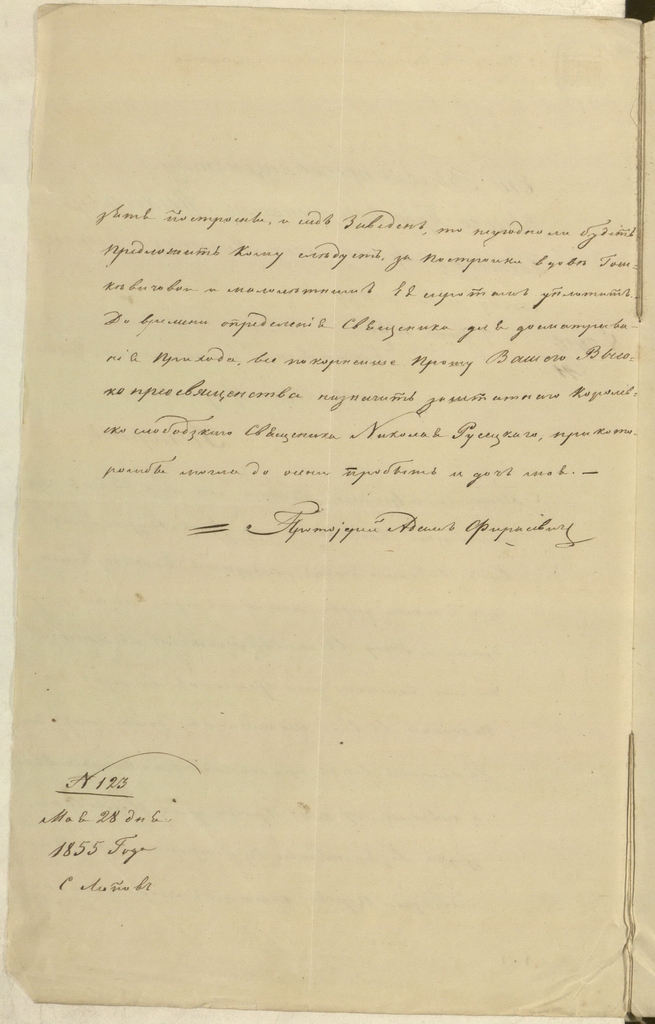 зять построены, и садъ заведенъ, то неугодноли будетъ
предложить кому слѣдуетъ, за постройки вдовѣ Гош-
кѣвичовой и малолѣтнимъ Её сиротамъ уплотить.
До времени определенія Священика для досматрива-
нія прихода, все покорнейше прошу Вашего Высо-
копреосвященства назначить заштатнаго Королев-
ско слободзкаго Священика Николая Русецкаго, при кото-
ромъбы могла до осени пробыть и дочь моя. —
Протоіерей Адамъ
N 123
Мая 28 дня
1855 Года
С